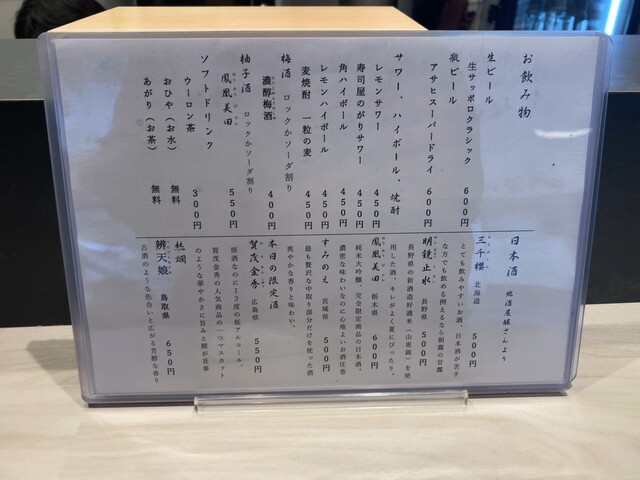 お飲み物
生ビール
生サッポロクラシック 600円
瓶ビール
アサヒスーパードライ 600円
サワー、ハイボール、焼酎
レモンサワー 450円
寿司屋のがりサワー 450円
角ハイボール 450円
レモンハイボール 450円
麦焼酎 一粒の麦 450円
梅酒 ロックかソーダ割り
濃醇梅酒 400円
柚子酒 ロックかソーダ割り
鳳凰美田 550円
ソフトドリンク
ウーロン茶 300円
おひや（お水） 無料
あがり（お茶） 無料
日本酒 地酒屋酵さんより
三千櫻 北海道 500円
とても飲みやすいお酒、日本酒が苦手
な方でも飲める例えるなら朝露の甘露
明鏡止水 長野県 500円
長野県の新酒造好適米（山恵錦）を使
用した酒、キレがよく夏にぴったり。
鳳凰美田 栃木県 600円
純米大吟醸、完全限定商品の日本酒、
濃密な味わいなのに心地よいお酒圧巻
すみのえ 宮城県 500円
最も贅沢な中取り部分だけを使った酒
爽やかな香りと味わい。
本日の限定酒
賀茂金秀 広島県 550円
原酒なのに13度の低アルコール、
賀茂金秀の人気商品の一つマスカット
のような華やかさに旨みと酸が見事
熱燗
辨天娘 鳥取県 650円
古酒のような色合いと広がる芳醇な香り